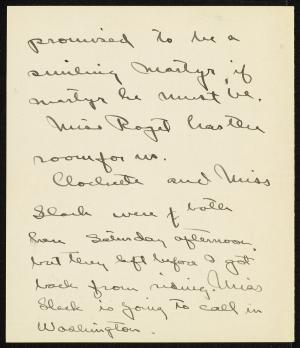 promised to be a
smiling martyr, if
martyr he must be.
Miss Roget has the
room for us.
and Miss
Slack were both
Saturday afternoon,
but they left before I got
back from riding. Miss
Slack is going to call in
Washington.